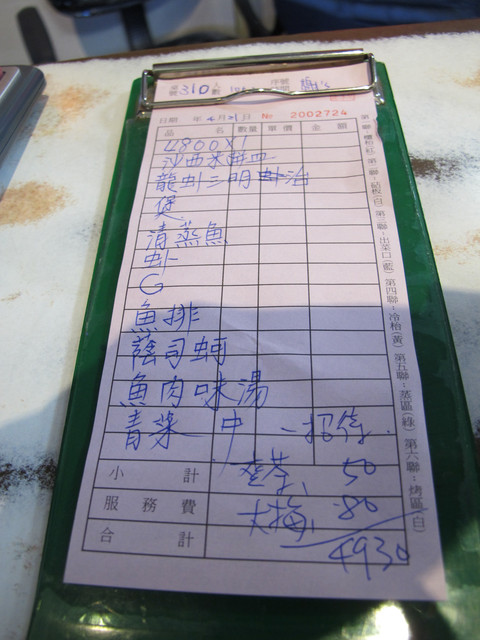 桌號 310 人數
日期 年 4 月 21 日 № 2002724
品名 數量 單價 金額
4800x1
沙西米拼皿
龍虾三明虾治
煲
清蒸魚
虾
G
魚排
蔭司蚵
魚肉味湯
青菜 中 一招待
小計 麥茶 50
服務費 大梅 80
合計 4930
第一聯：櫃枱(紅) 第二聯：結帳(白) 第三聯：出菜口(藍) 第四聯：冷枱(黃) 第五聯：蒸區(綠) 第六聯：烤區(白)